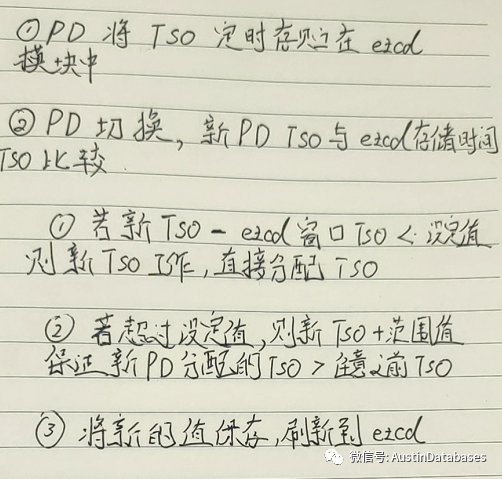 ①PD 将 TSO 定时存贮在 ezcd
模块中
②PD 切换,新PD TSO与ezcd存储时间
TSO 比较
① 若新TSO - ezcd 窗口TSO <设定值
则新TSO工作,直接分配TSO
② 若超过设定值,则新TSO+范围值
保证新PD分配的TSO>任意之前TSO
③ 将新的值保存,刷新到 ezcd
微信号: AustinDatabases